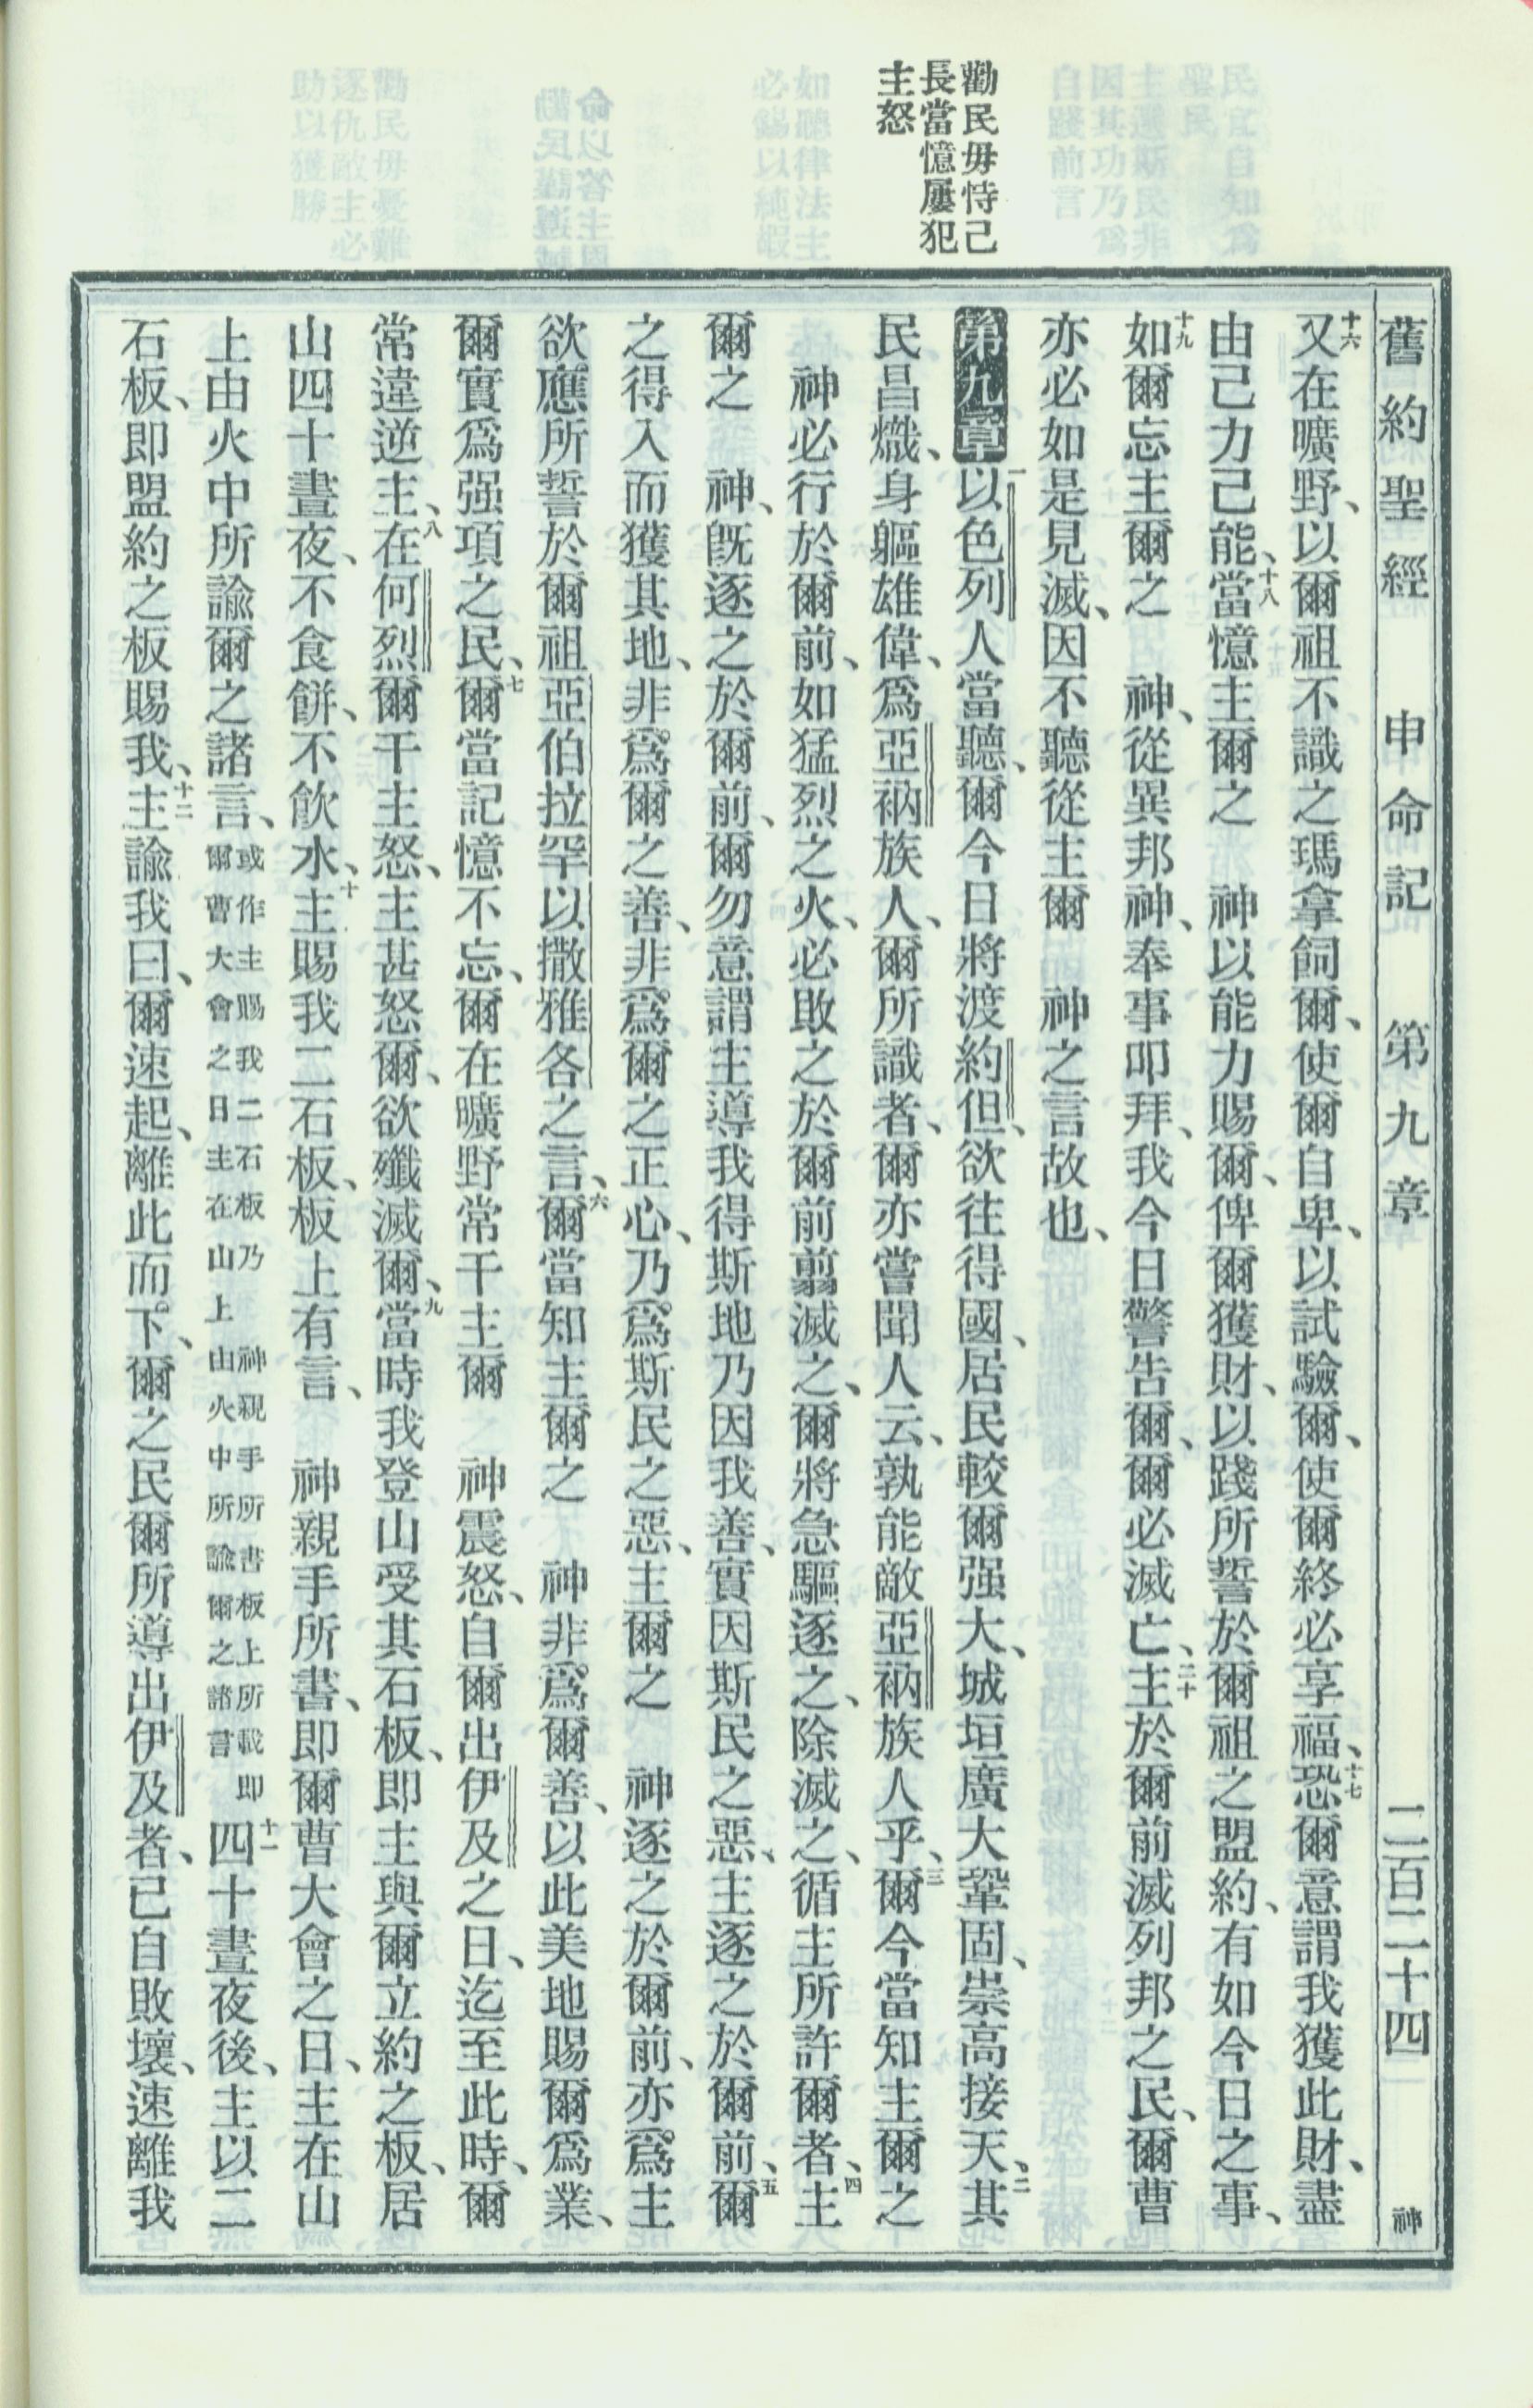 舊約聖經　申命記　第九章　二百二十四　神
勸民毋恃己
長當憶屢犯
主怒
十六又在曠野、以爾祖不識之瑪拿飼爾、使爾自卑、以試驗爾、使爾終必享福、十七恐爾意謂我獲此財、盡
由己力己能、十八當憶主爾之　神以能力賜爾、俾爾獲財、以踐所誓於爾祖之盟約、有如今日之事、
十九如爾忘主爾之　神、從異邦神、奉事叩拜、我今日警告爾、爾必滅亡、二十主於爾前滅列邦之民、爾曹
亦必如是見滅、因不聽從主爾　神之言故也、
第九章一以色列人當聽、爾今日將渡約但、欲往得國、居民較爾强大、城垣廣大鞏固、崇高接天、二其
民昌熾、身軀雄偉、爲亞衲族人、爾所識者、爾亦嘗聞人云、孰能敵亞衲族人乎、三爾今當知主爾之
　神必行於爾前、如猛烈之火、必敗之於爾前翦滅之、爾將急驅逐之、除滅之、循主所許爾者、四主
爾之　神、旣逐之於爾前、爾勿意謂主導我得斯地乃因我善、實因斯民之惡、主逐之於爾前、五爾
之得入而獲其地、非爲爾之善、非爲爾之正心、乃爲斯民之惡、主爾之　神逐之於爾前、亦爲主
欲應所誓於爾祖亞伯拉罕以撒雅各之言、六爾當知主爾之　神非爲爾善、以此美地賜爾爲業、
爾實爲强項之民、七爾當記憶不忘、爾在曠野常干主爾　神震怒、自爾出伊及之日、迄至此時、爾
常違逆主、八在何烈爾干主怒、主甚怒爾、欲殲滅爾、九當時我登山受其石板、即主與爾立約之板、居
山四十晝夜、不食餅、不飲水、十主賜我二石板、板上有言、　神親手所書、即爾曹大會之日、主在山
上由火中所諭爾之諸言、或作主賜我二石板乃　神親手所書板上所載即爾曹大會之日主在山上由火中所諭爾之諸言十一四十晝夜後、主以二
石板、即盟約之板賜我、十二主諭我曰、爾速起、離此而下、爾之民爾所導出伊及者、已自敗壞、速離我